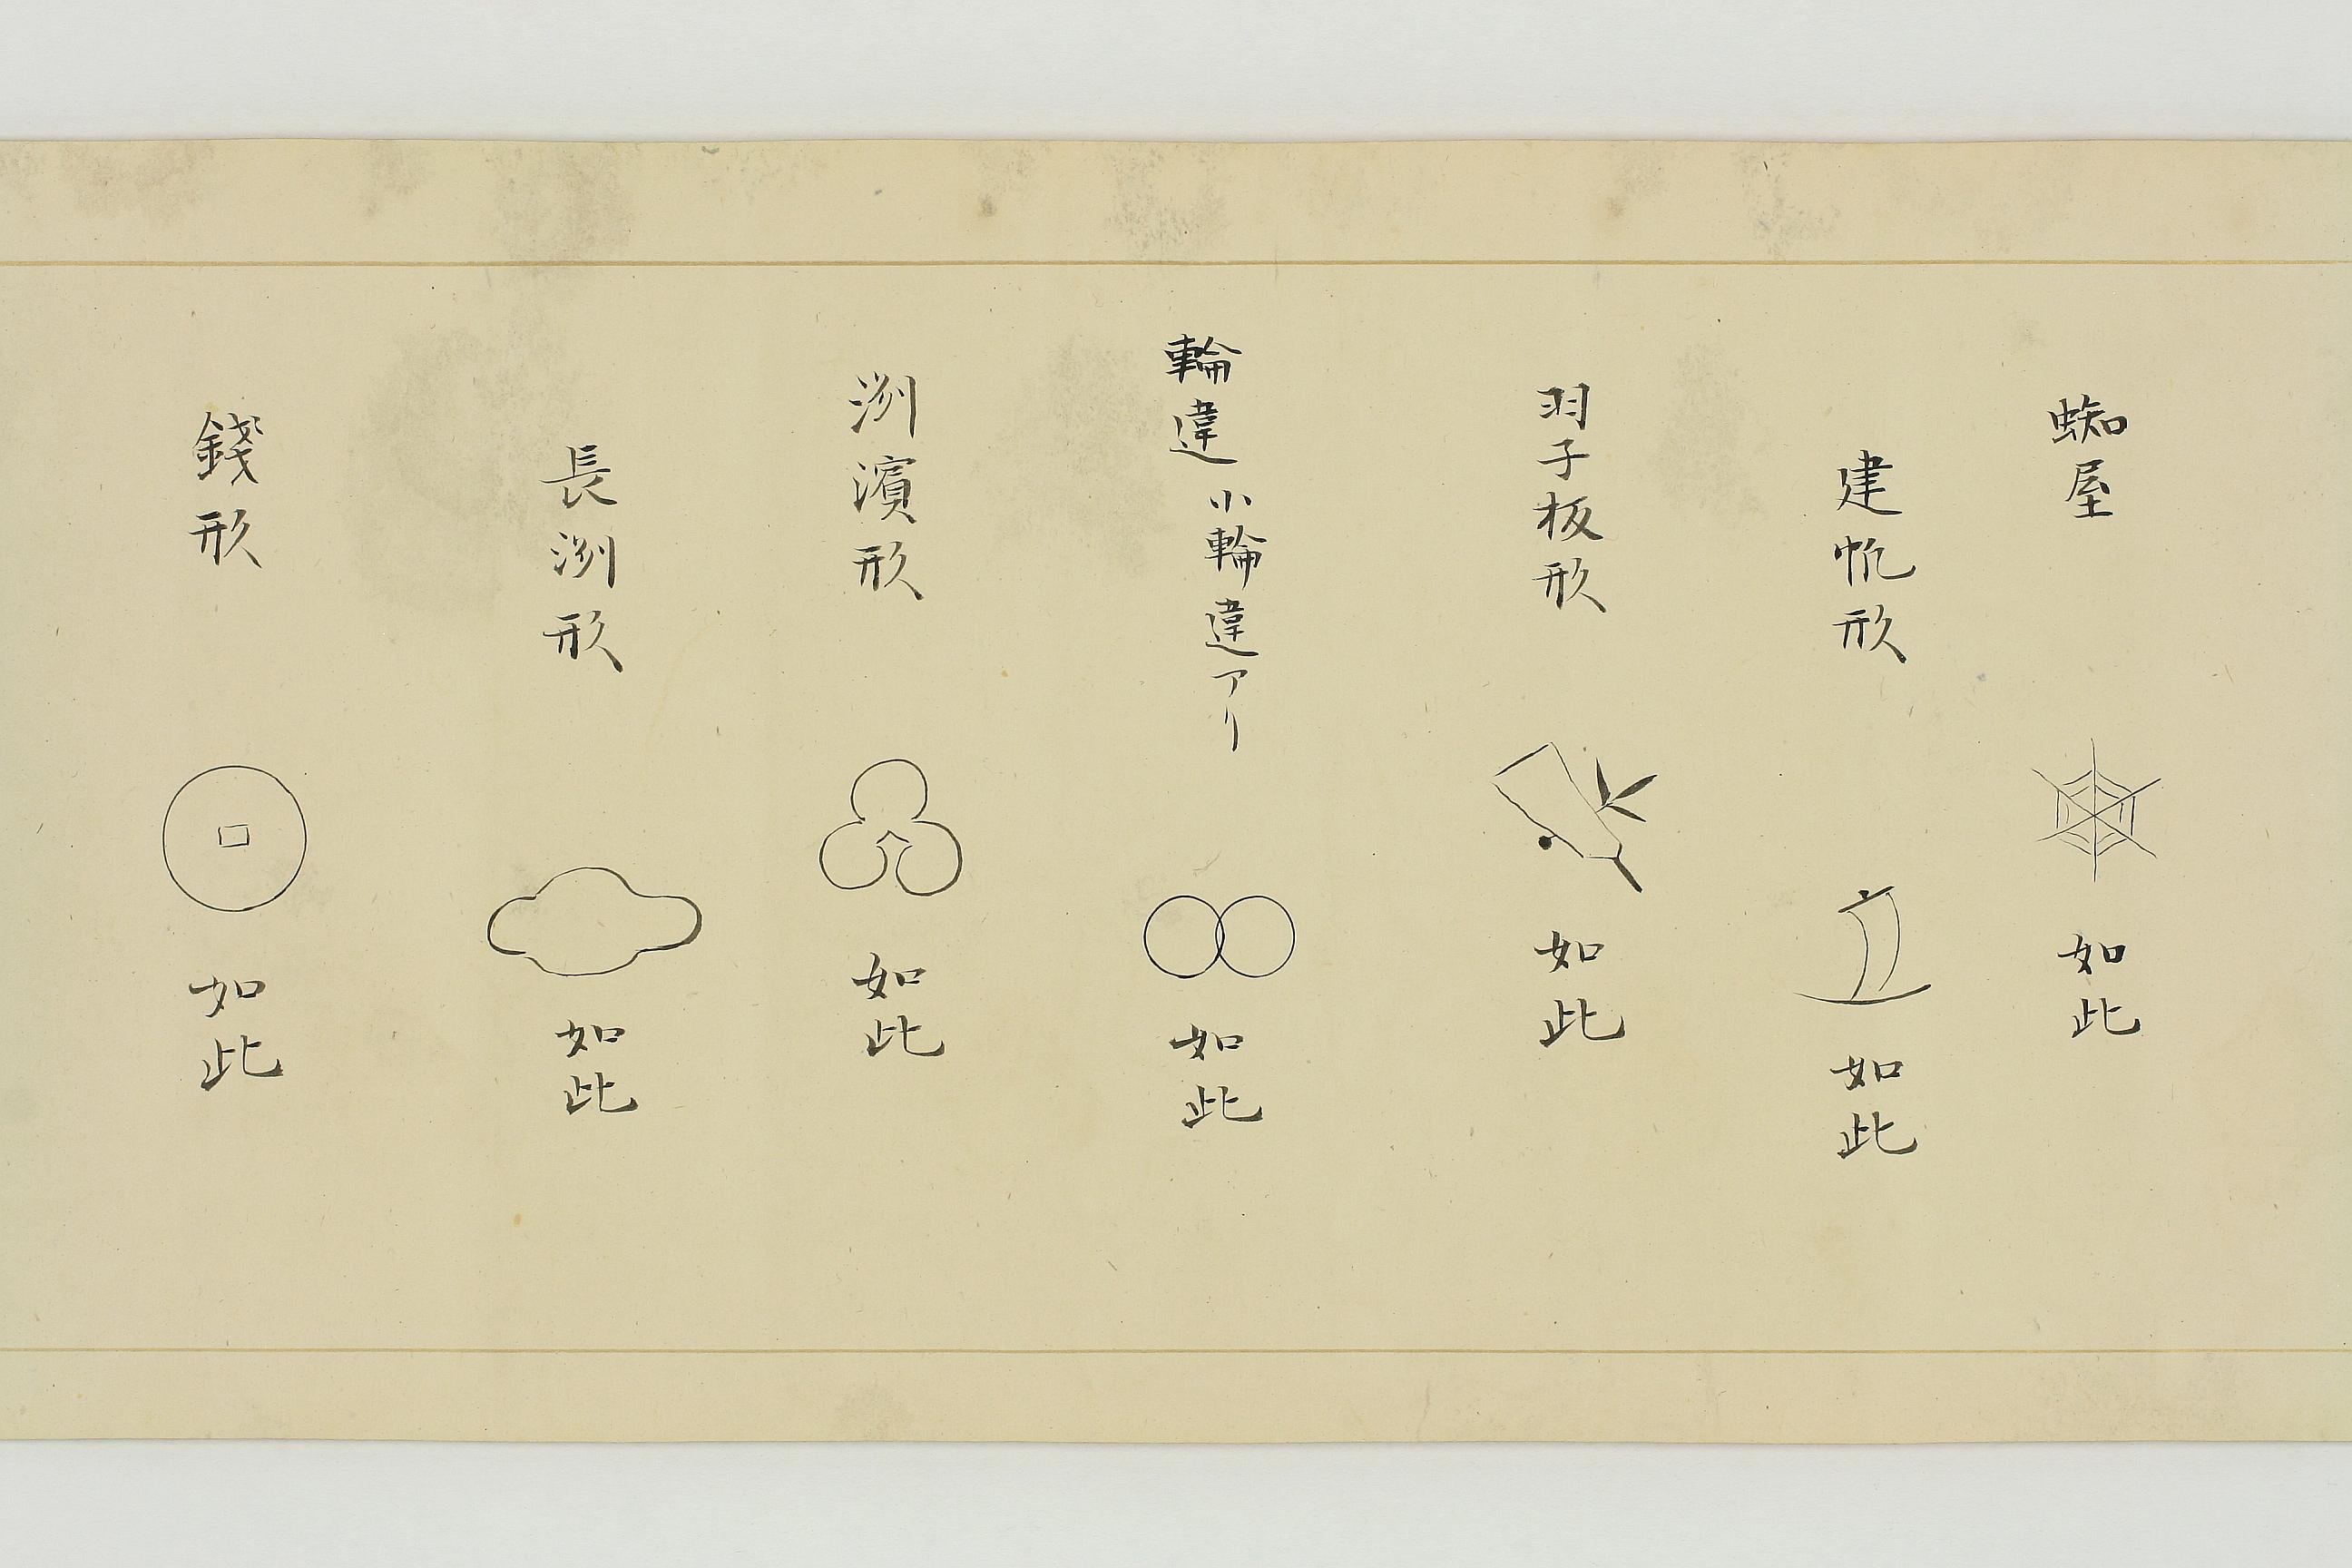 蜘屋
如此
建帆形
如此
羽子板形
如此
輪違小輪違アリ
如此
洲濱形
如此
長洲形
如此
錢形
如此